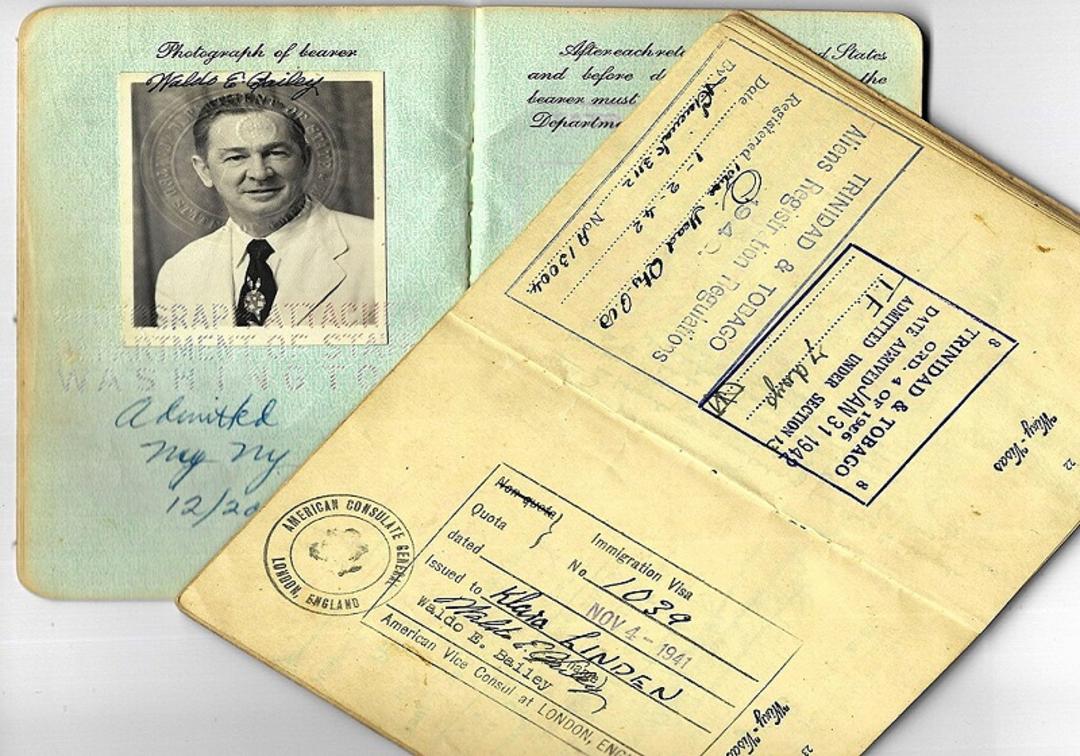 Photograph of bearer
Waldo E. Bailey
GRAPH ATTACH
DEPARTMENT OF STA
WASHINGTO
Admitted
NY NY
12/20
After each ret
d States
and before d
the
bearer must
Departme
TRINIDAD & TOBAGO
Aliens Registration Regulations
1942
Registered
Date 1-2-42
By
No A 13004
8 TRINIDAD & TOBAGO 8
ORD. 4 OF 1936
DATE ARRIVED JAN 31 1942
ADMITTED UNDER SECTION
7 days
Way-Visas
22
AMERICAN CONSULATE GENERAL
LONDON, ENGLAND
Non-quota
Quota
Immigration Visa
No. 1039
dated NOV 4 - 1941
Issued to Klara LINDEN
(name)
Waldo E. Bailey
Waldo E. Bailey
American Vice Consul at LONDON, ENG
Way-Visas
23